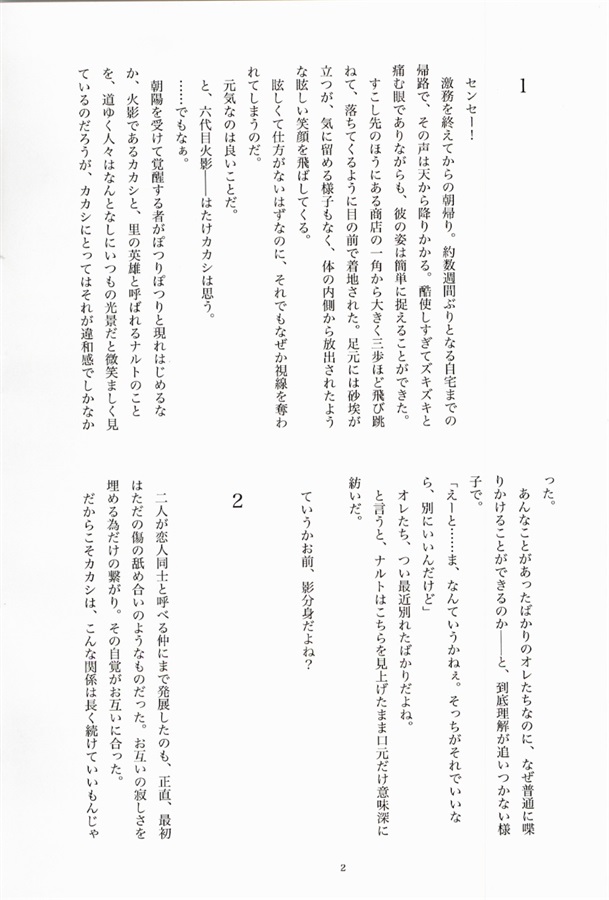 1
センセー!
激務を終えてからの朝帰り。約数週間ぶりとなる自宅までの
帰路で、その声は天から降りかかる。酷使しすぎてズキズキと
痛む眼でありながらも、彼の姿は簡単に捉えることができた。
すこし先のほうにある商店の一角から大きく三歩ほど飛び跳
ねて、落ちてくるように目の前で着地された。足元には砂埃が
立つが、気に留める様子もなく、体の内側から放出されたよう
な眩しい笑顔を飛ばしてくる。
眩しくて仕方がないはずなのに、それでもなぜか視線を奪わ
れてしまうのだ。
元気なのは良いことだ。
と、六代目火影――はたけカカシは思う。
……でもなぁ。
朝陽を受けて覚醒する者がぽつりぽつりと現れはじめるな
か、火影であるカカシと、里の英雄と呼ばれるナルトのこと
を、道ゆく人々はなんとなしにいつもの光景だと微笑ましく見
ているのだろうが、カカシにとってはそれが違和感でしかなか
った。
あんなことがあったばかりのオレたちなのに、なぜ普通に喋
りかけることができるのか――と、到底理解が追いつかない様
子で。
「えーと……ま、なんていうかねぇ。そっちがそれでいいな
ら、別にいいんだけど」
オレたち、つい最近別れたばかりだよね。
と言うと、ナルトはこちらを見上げたまま口元だけ意味深に
紡いだ。
ていうかお前、影分身だよね?
2
二人が恋人同士と呼べる仲にまで発展したのも、正直、最初
はただの傷の舐め合いのようなものだった。お互いの寂しさを
埋める為だけの繋がり。その自覚がお互いに合った。
だからこそカカシは、こんな関係は長く続けていいもんじゃ
2